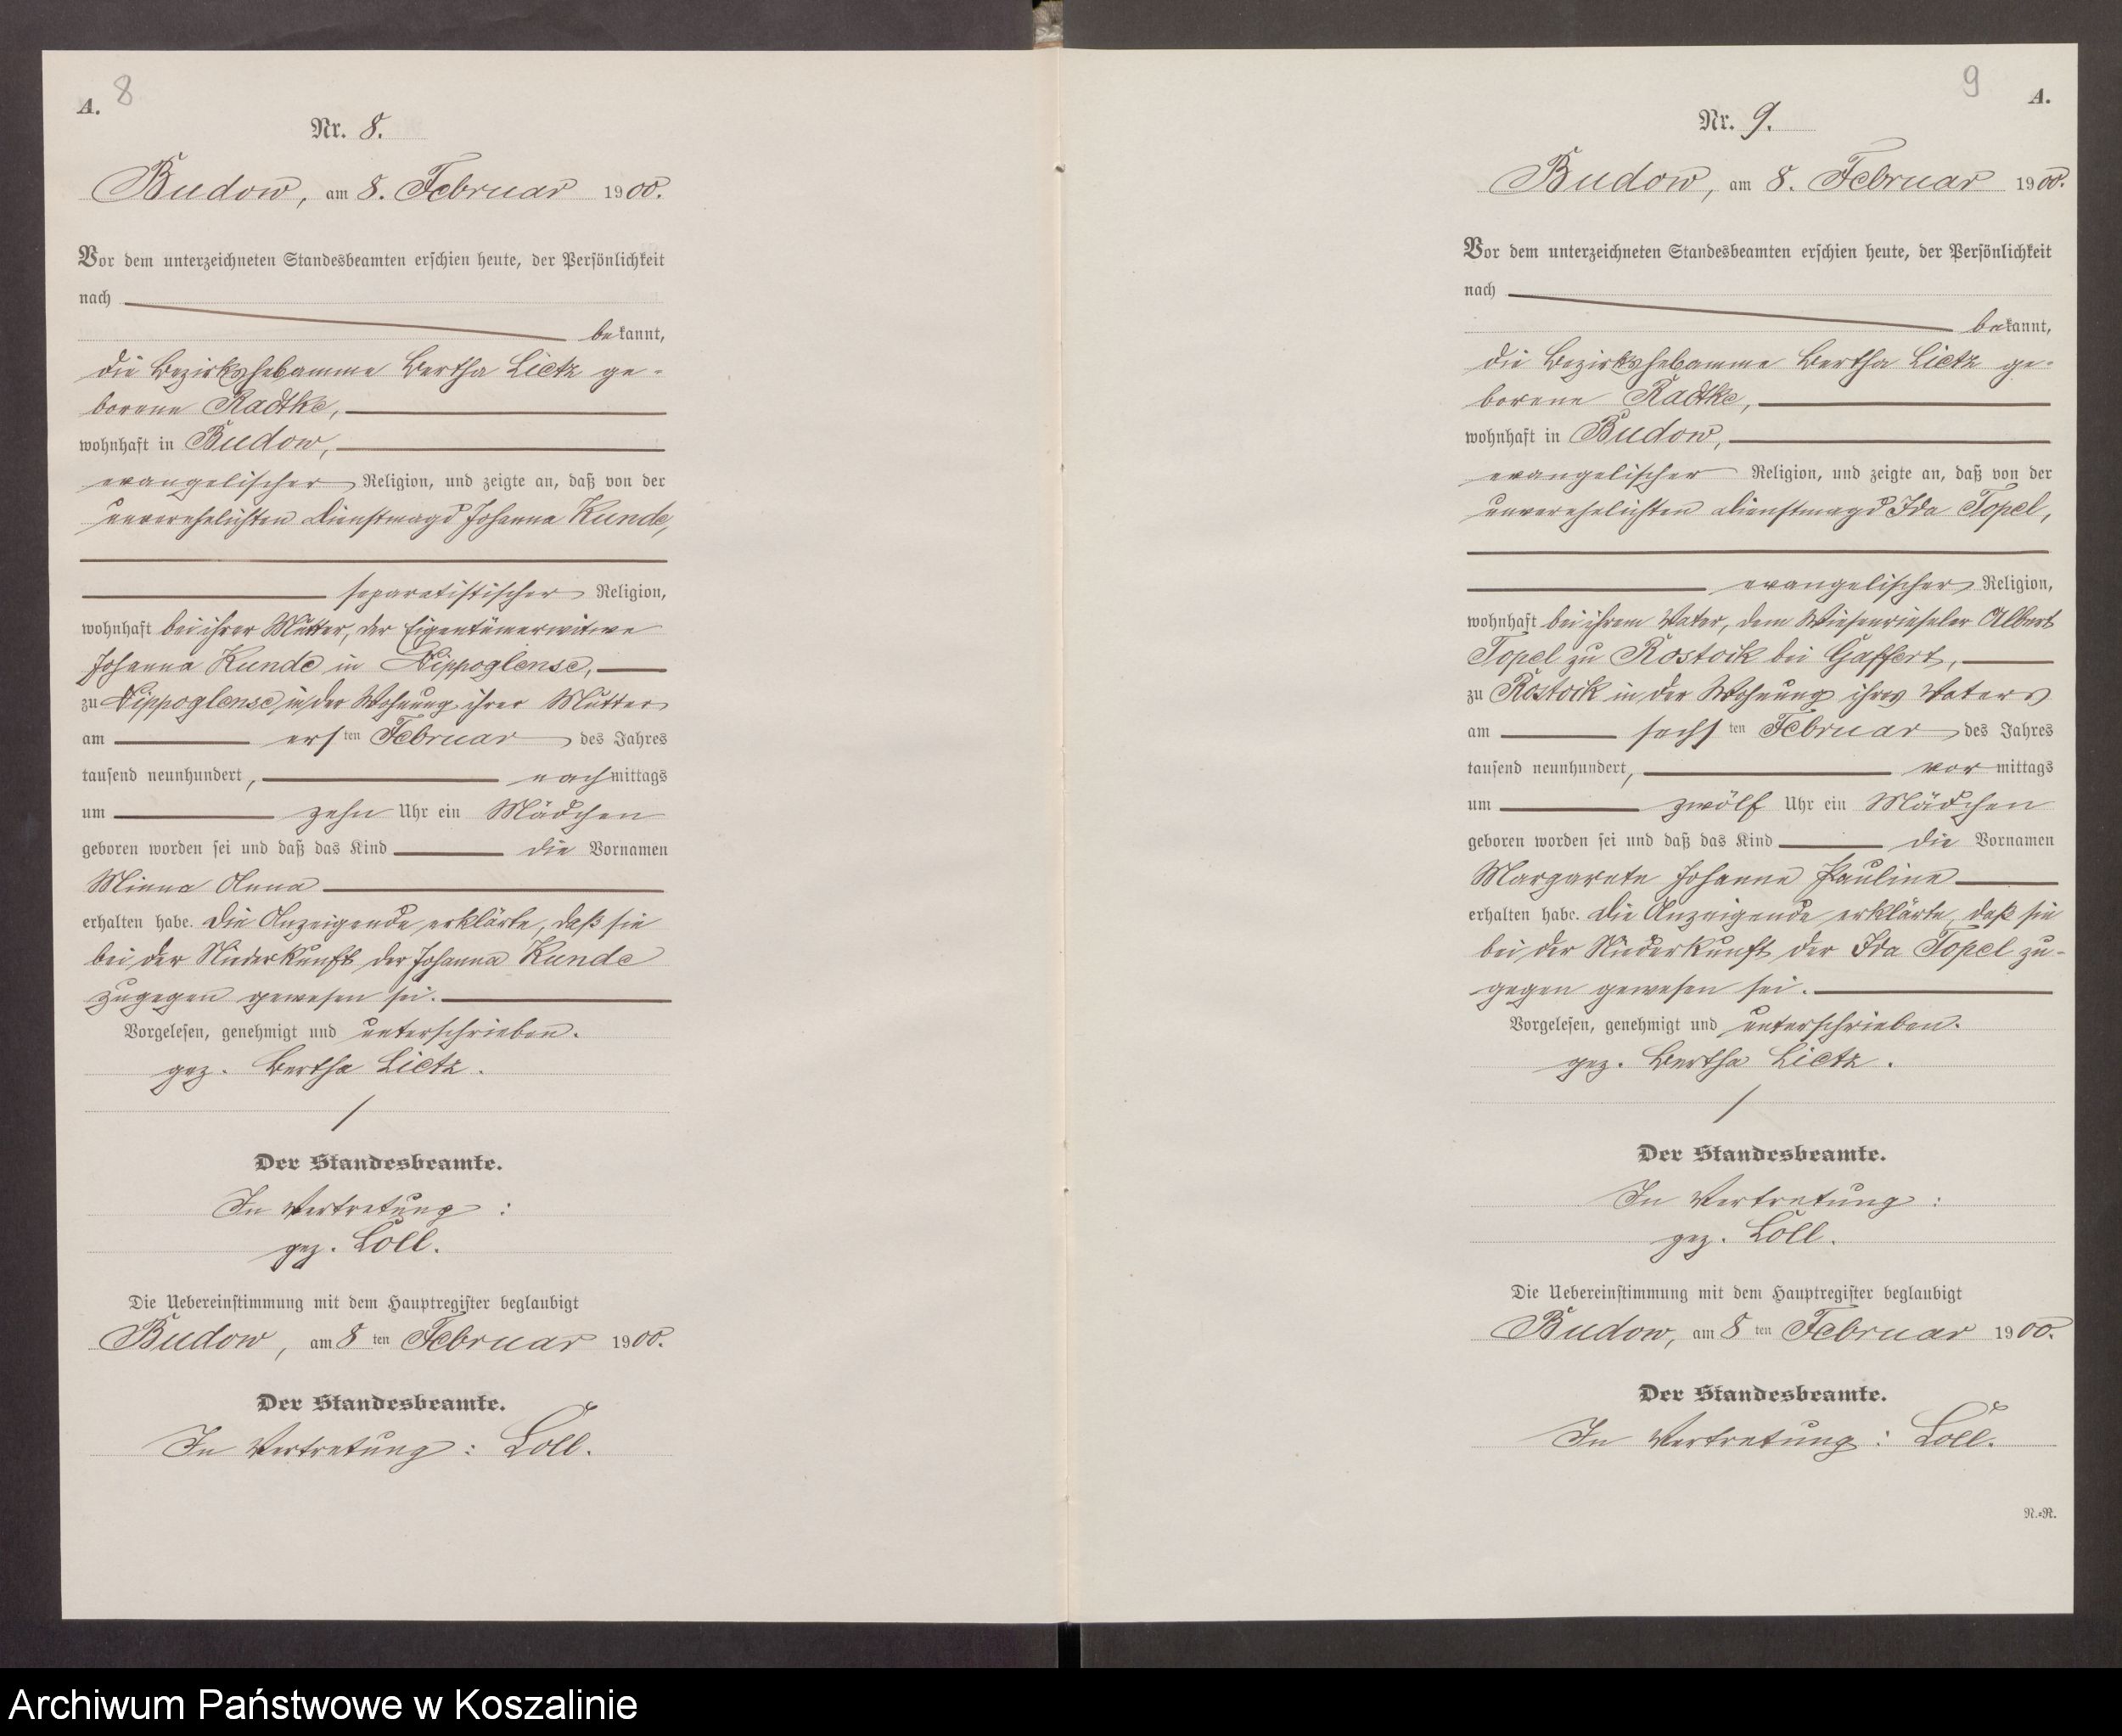 8
A.
Nr. 8.
Budow, am 8. Februar 1900.
Vor dem unterzeichneten Standesbeamten erschien heute, der Persönlichkeit
nach
bekannt,
die Bezirkshebamme Bertha Lietz ge-
borene Radtke,
wohnhaft in Budow,
evangelischer Religion, und zeigte an, daß von der
unverehelichten Dienstmagd Johanna Kunde,
separatistischer Religion,
wohnhaft bei ihrer Mutter, der Eigentümerwitwe
Johanna Kunde in Nippoglense,
zu Nippoglense, in der Wohnung ihrer Mutter
am ersten Februar des Jahres
tausend neunhundert, nachmittags
um zehn Uhr ein Mädchen
geboren worden sei und daß das Kind die Vornamen
Minna Anna
erhalten habe. Die Anzeigende erklärte, daß sie
bei der Niederkunft der Johanna Kunde
zugegen gewesen sei.
Vorgelesen, genehmigt und unterschrieben.
gez. Bertha Lietz.
Der Standesbeamte.
In Vertretung:
gez. Loll.
Die Uebereinstimmung mit dem Hauptregister beglaubigt
Budow, am 8ten Februar 1900.
Der Standesbeamte.
In Vertretung: Loll.
9
A.
Nr. 9.
Budow, am 8. Februar 1900.
Vor dem unterzeichneten Standesbeamten erschien heute, der Persönlichkeit
nach
bekannt,
die Bezirkshebamme Bertha Lietz ge-
borene Radtke,
wohnhaft in Budow,
evangelischer Religion, und zeigte an, daß von der
unverehelichten Dienstmagd Ida Topel,
evangelischer Religion,
wohnhaft bei ihrem Vater, dem Wiesenrieseler Albert
Topel zu Rostock bei Gaffert,
zu Rostock in der Wohnung ihres Vaters
am sechsten Februar des Jahres
tausend neunhundert, vormittags
um zwölf Uhr ein Mädchen
geboren worden sei und daß das Kind die Vornamen
Margarete Johanne Pauline
erhalten habe. Die Anzeigende erklärte, daß sie
bei der Niederkunft der Ida Topel zu-
gegen gewesen sei.
Vorgelesen, genehmigt und unterschrieben.
gez. Bertha Lietz.
Der Standesbeamte.
In Vertretung:
gez. Loll.
Die Uebereinstimmung mit dem Hauptregister beglaubigt
Budow, am 8ten Februar 1900.
Der Standesbeamte.
In Vertretung: Loll.
N.=R.
Archiwum Państwowe w Koszalinie